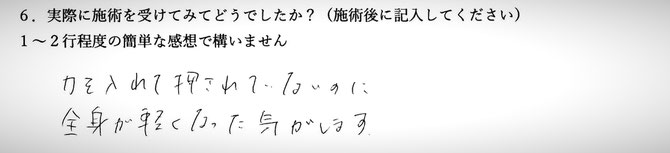 ６．実際に施術を受けてみてどうでしたか？（施術後に記入してください）
１～２行程度の簡単な感想で構いません
力を入れて押されていないのに
全身が軽くなった気がします